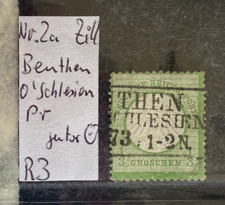 Nr. 2a
Benthen
O'Schlesien
Pr
guter
R3
THEN
HLESIEN
73 1-2N.
GROSCHEN